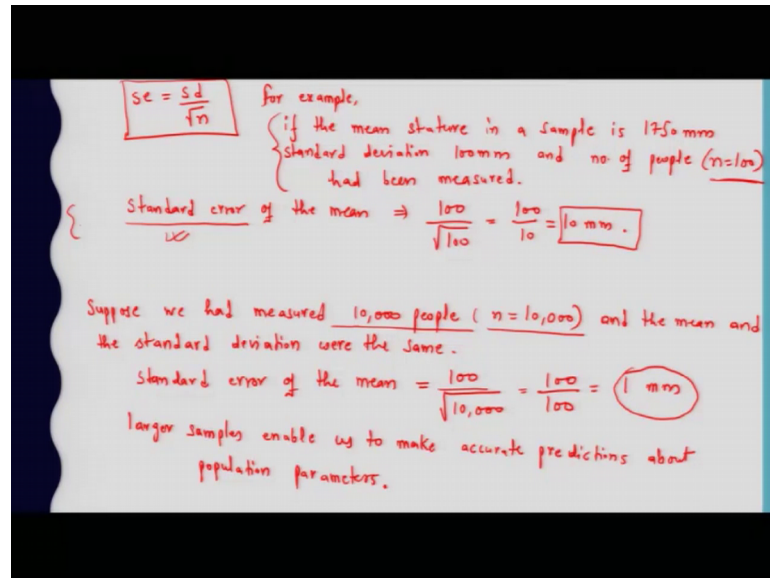 se = sd / √n
for example,
if the mean stature in a sample is 1750 mm
standard deviation 100mm and no. of people (n=100)
had been measured.
Standard error of the mean ⇒ 100 / √100 = 100 / 10 = 10 mm.
Suppose we had measured 10,000 people (n=10,000) and the mean and
the standard deviation were the same.
Standard error of the mean = 100 / √10,000 = 100 / 100 = 1 mm
larger samples enable us to make accurate predictions about
population parameters.